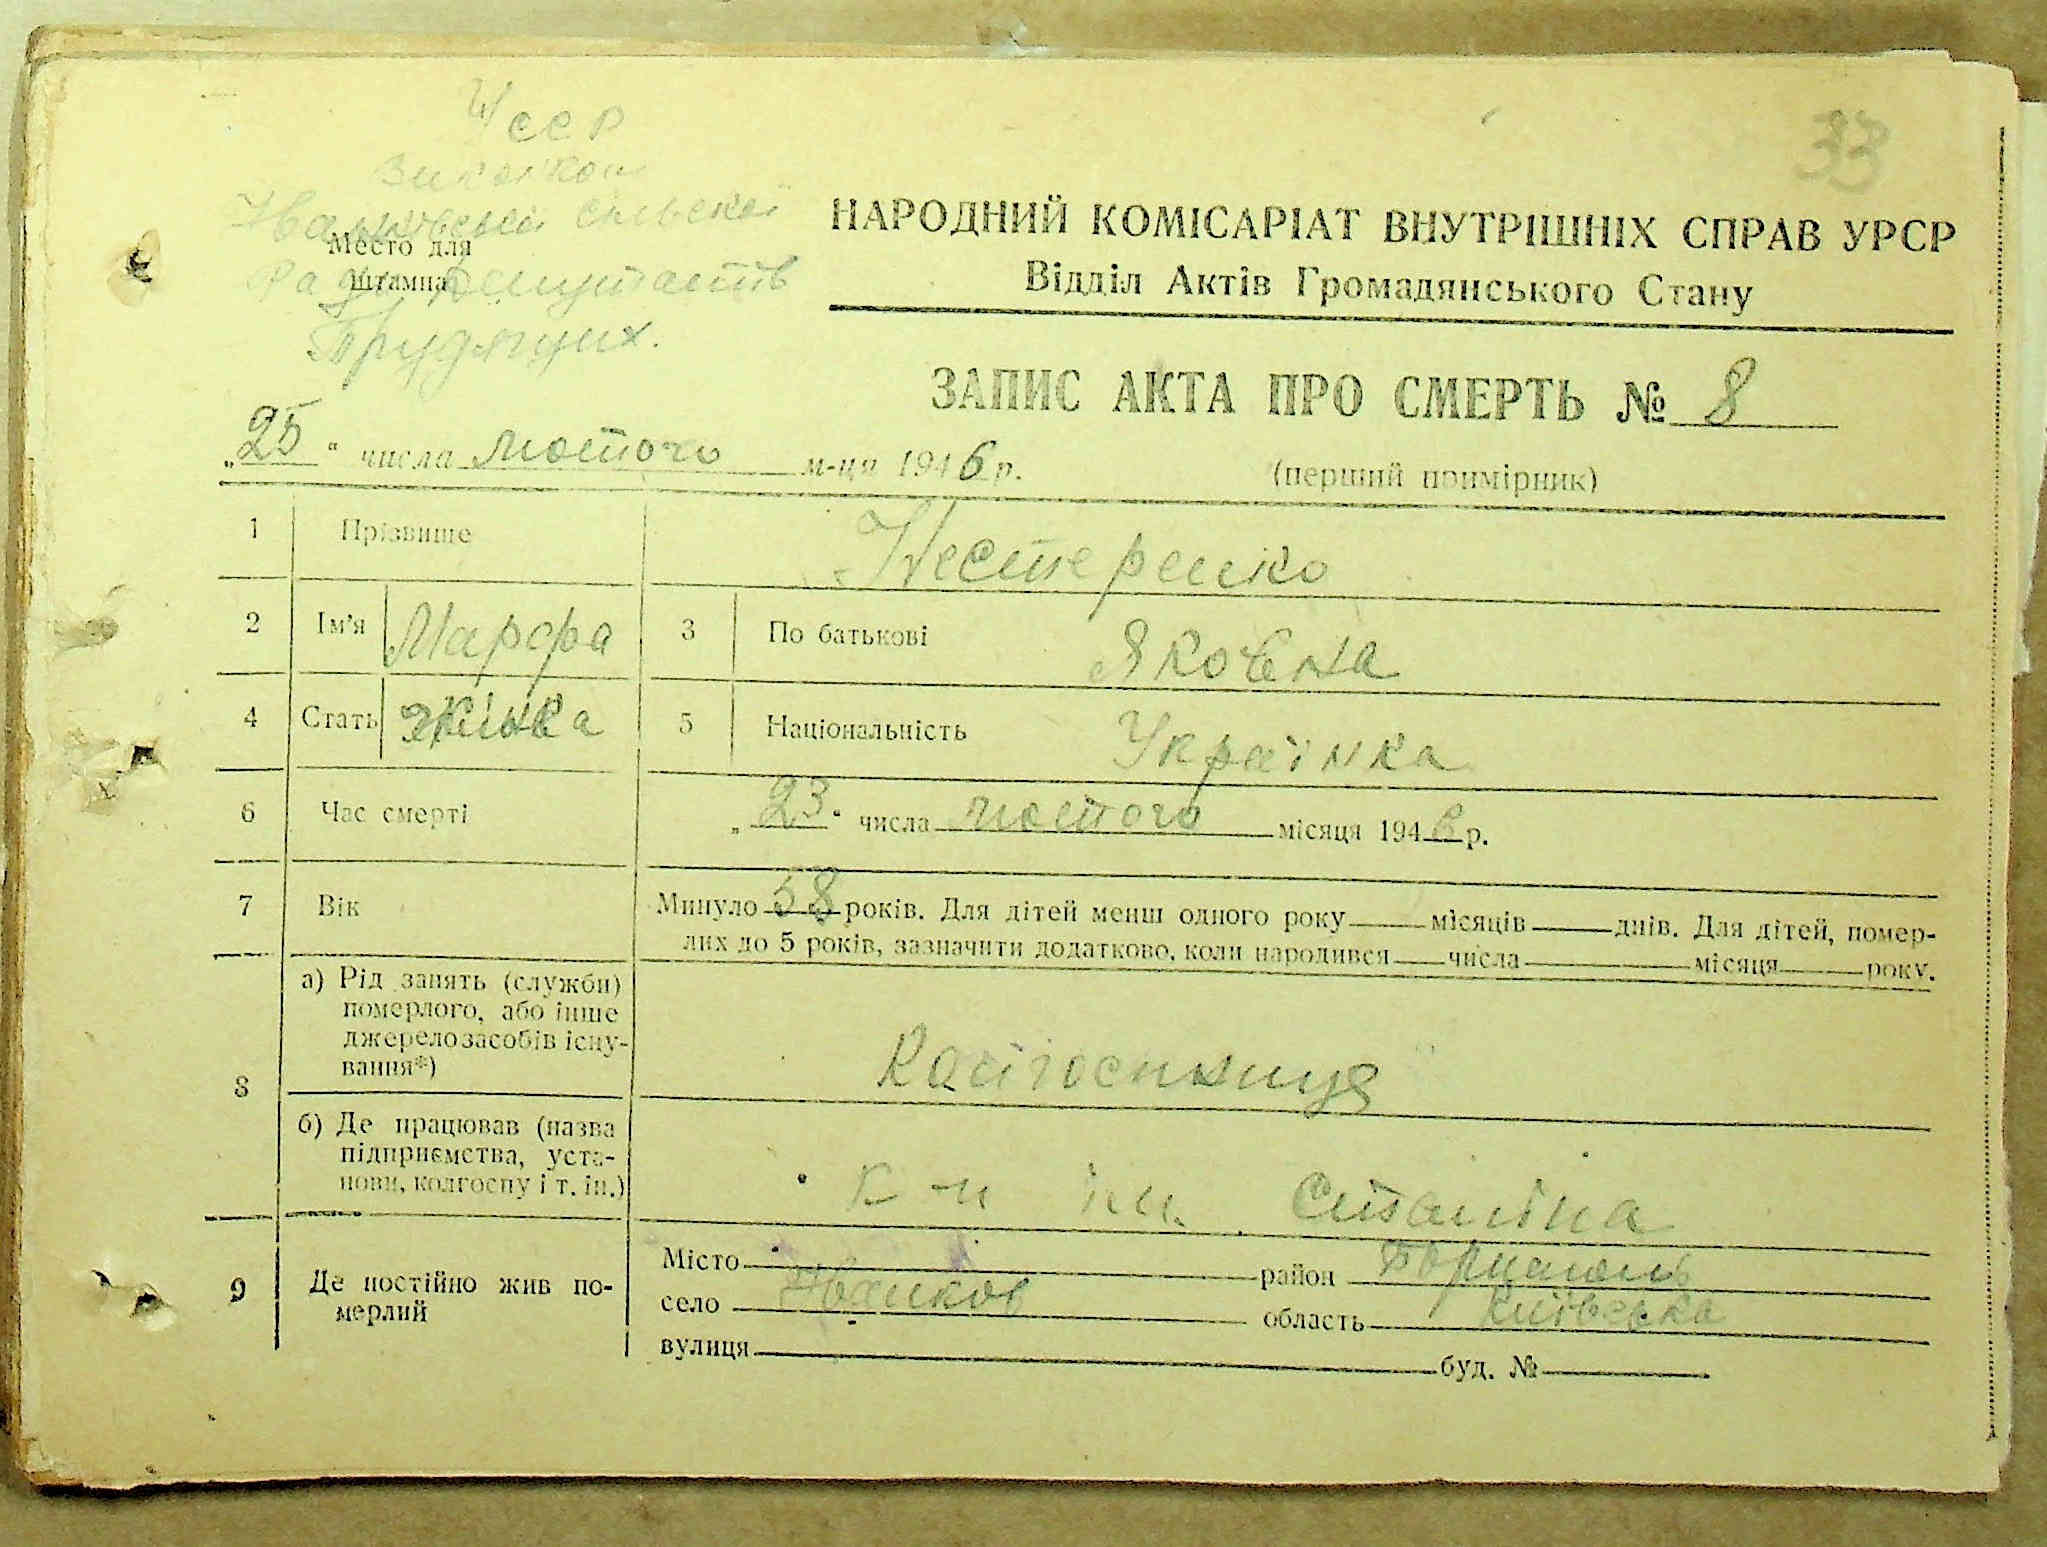 33
УССР
Виконком
сільської
Место для
штампа
Ради Депутатів
Трудящих.
НАРОДНИЙ КОМІСАРІАТ ВНУТРІШНІХ СПРАВ УРСР
Відділ Актів Громадянського Стану
ЗАПИС АКТА ПРО СМЕРТЬ № 8
„25“ числа лютого м-ця 1946 р.
(перший примірник)
1 Прізвище Нестеренко
2 Ім'я Марфа 3 По батькові Яковна
4 Стать жінка 5 Національність Українка
6 Час смерті „23“ числа лютого місяця 1946 р.
7 Вік Минуло 58 років. Для дітей менш одного року місяців днів. Для дітей, помер-
лих до 5 років, зазначити додатково, коли народився числа місяця року.
8 а) Рід занять (служби)
померлого, або інше
джерело засобів існу-
вання*)
Колгоспниця
б) Де працював (назва
підприємства, уста-
нови, колгоспу і т. ін.)
к-п ім. Сталіна
9 Де постійно жив по-
мерлий
Місто район Борщагол
село область Київська
вулиця буд. №